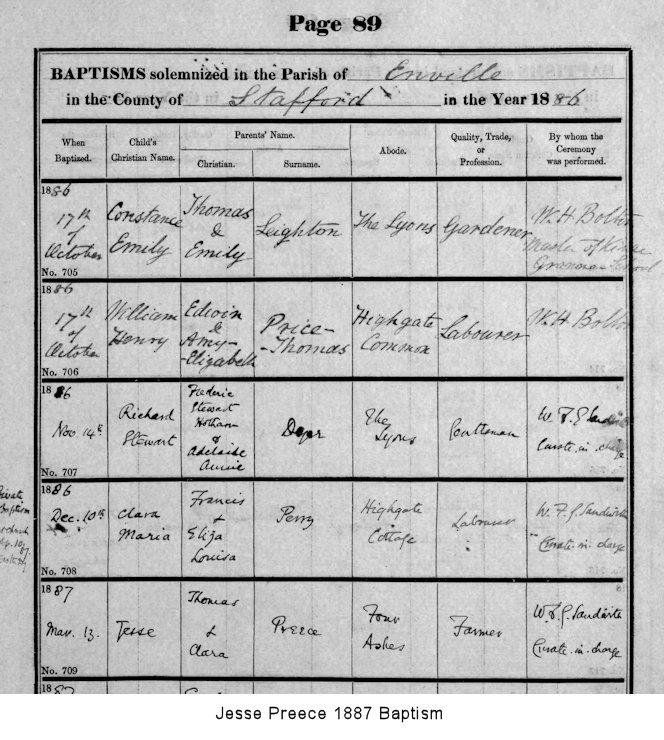 Page 89
BAPTISMS solemnized in the Parish of Enville
in the County of Stafford in the Year 1886
When Baptized.
Child's Christian Name.
Parents' Name.
Christian.
Surname.
Abode.
Quality, Trade, or Profession.
By whom the Ceremony was performed.
1886
17th of October
No. 705
Constance Emily
Thomas & Emily
Leighton
The Lyons
Gardener
W. H. Bolton
Grammar School
1886
17th of October
No. 706
William Henry
Edwin & Amy-Elizabeth
Price-Thomas
Highgate Common
Labourer
W. H. Bolton
1886
Nov 14
No. 707
Richard Stewart
Frederic Stewart & Adelaide
The Lyons
Gentleman
Curate in charge
1886
Dec. 10th
No. 708
Clara Maria
Francis & Eliza Louisa
Perry
Highgate Cottage
Labourer
W. F. G. Sandwith
Curate in charge
Private Baptism
1887
Mar. 13.
No. 709
Jesse
Thomas & Clara
Preece
Four Ashes
Farmer
W. F. G. Sandwith
Curate in charge
1887
Jesse Preece 1887 Baptism